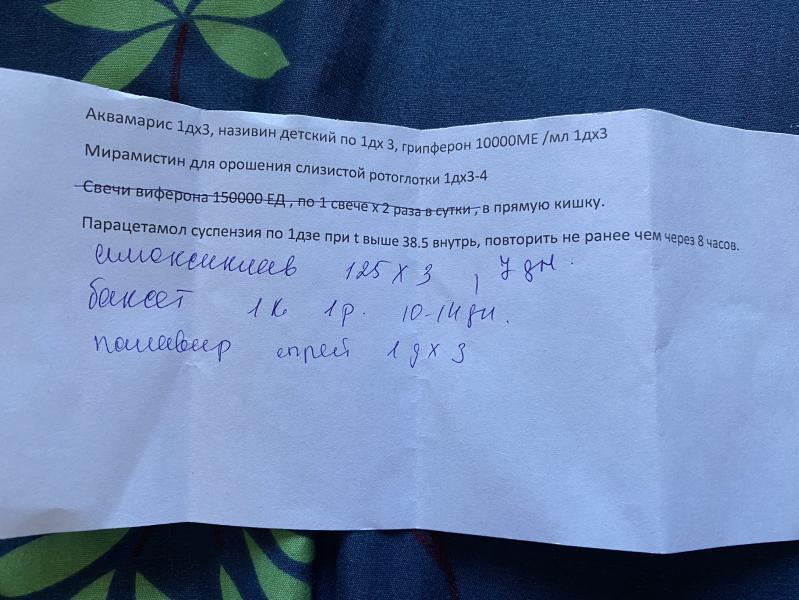 Аквамарис 1дх3, називин детский по 1дх 3, грипферон 10000МЕ /мл 1дх3
Мирамистин для орошения слизистой ротоглотки 1дх3-4
Свечи виферона 150000 ЕД , по 1 свече х 2 раза в сутки , в прямую кишку.
Парацетамол суспензия по 1дзе при t выше 38.5 внутрь, повторить не ранее чем через 8 часов.
амоксиклав 125 х 3 , 7 дн.
баксет 1к 1р. 10-14 дн.
панавир спрей 1 д х 3